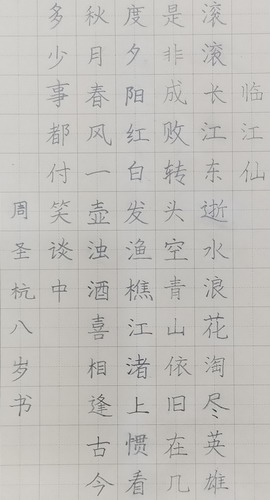 临江仙
滚滚长江东逝水浪花淘尽英雄
是非成败转头空青山依旧在几
度夕阳红白发渔樵江渚上惯看
秋月春风一壶浊酒喜相逢古今
多少事都付笑谈中
周圣杭八岁书